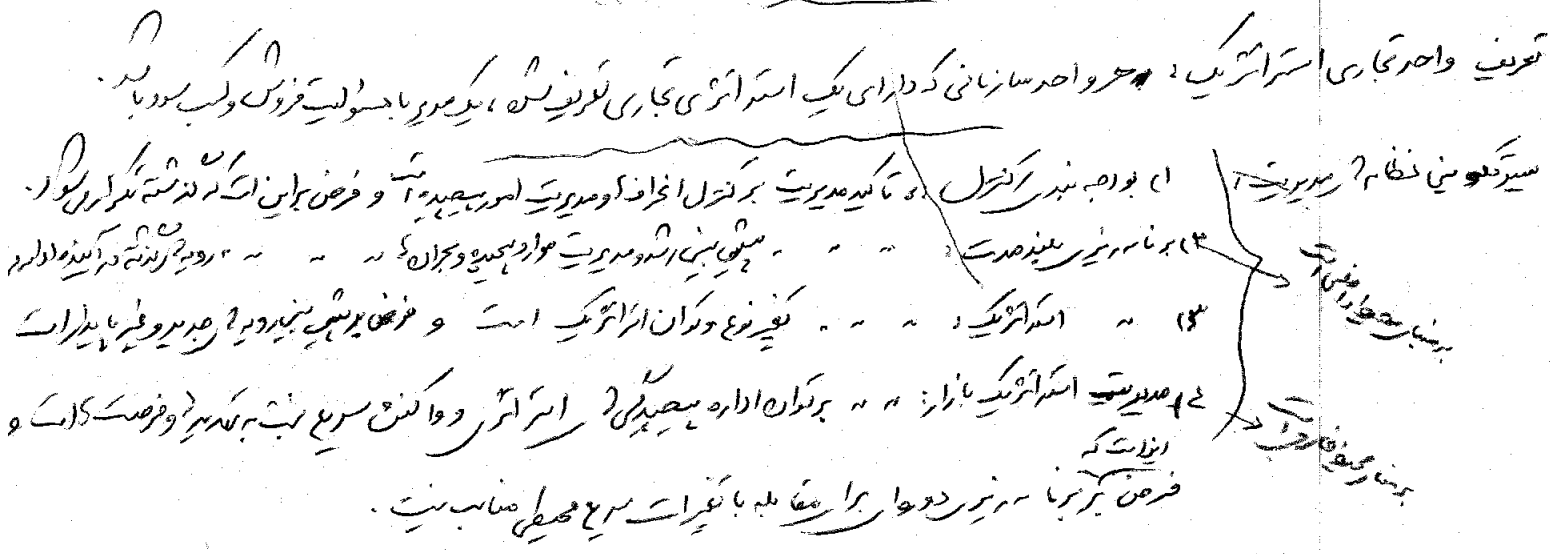 تعریف واحد تجاری استراتژیک : هر واحد سازمانی که دارای یک استراتژی تجاری تعریف شده ، یک مدیر با مسئولیت فروش و کسب سود باشد .
سیر تکوینی نظامهای مدیریت : ۱) بودجه بندی / کنترل : تاکید مدیریت بر کنترل انحراف و مدیریت امور پیچیده است و فرض بر این است که گذشته تکرار می شود .
۲) برنامه ریزی بلند مدت : " " " پیش بینی رشد و مدیریت موارد پیچیده و بحرانها " " " رویه های گذشته در آینده ادامه
۳) " استراتژیک : " " " تغییر نوع و توان استراتژیک است و فرض بر پیش بینی رویه های جدید و غیر پایدار است
۴) مدیریت استراتژیک بازار : " " بر توان اداره پیچیدگی های استراتژی و واکنش سریع نسبت به تهدیدها و فرصت ها است و
این است که
فرض بر برنامه ریزی دوره ای برای مقابله با تغییرات سریع محیطی مناسب نیست .
بر مبنای محیط
بر مبنای محیط